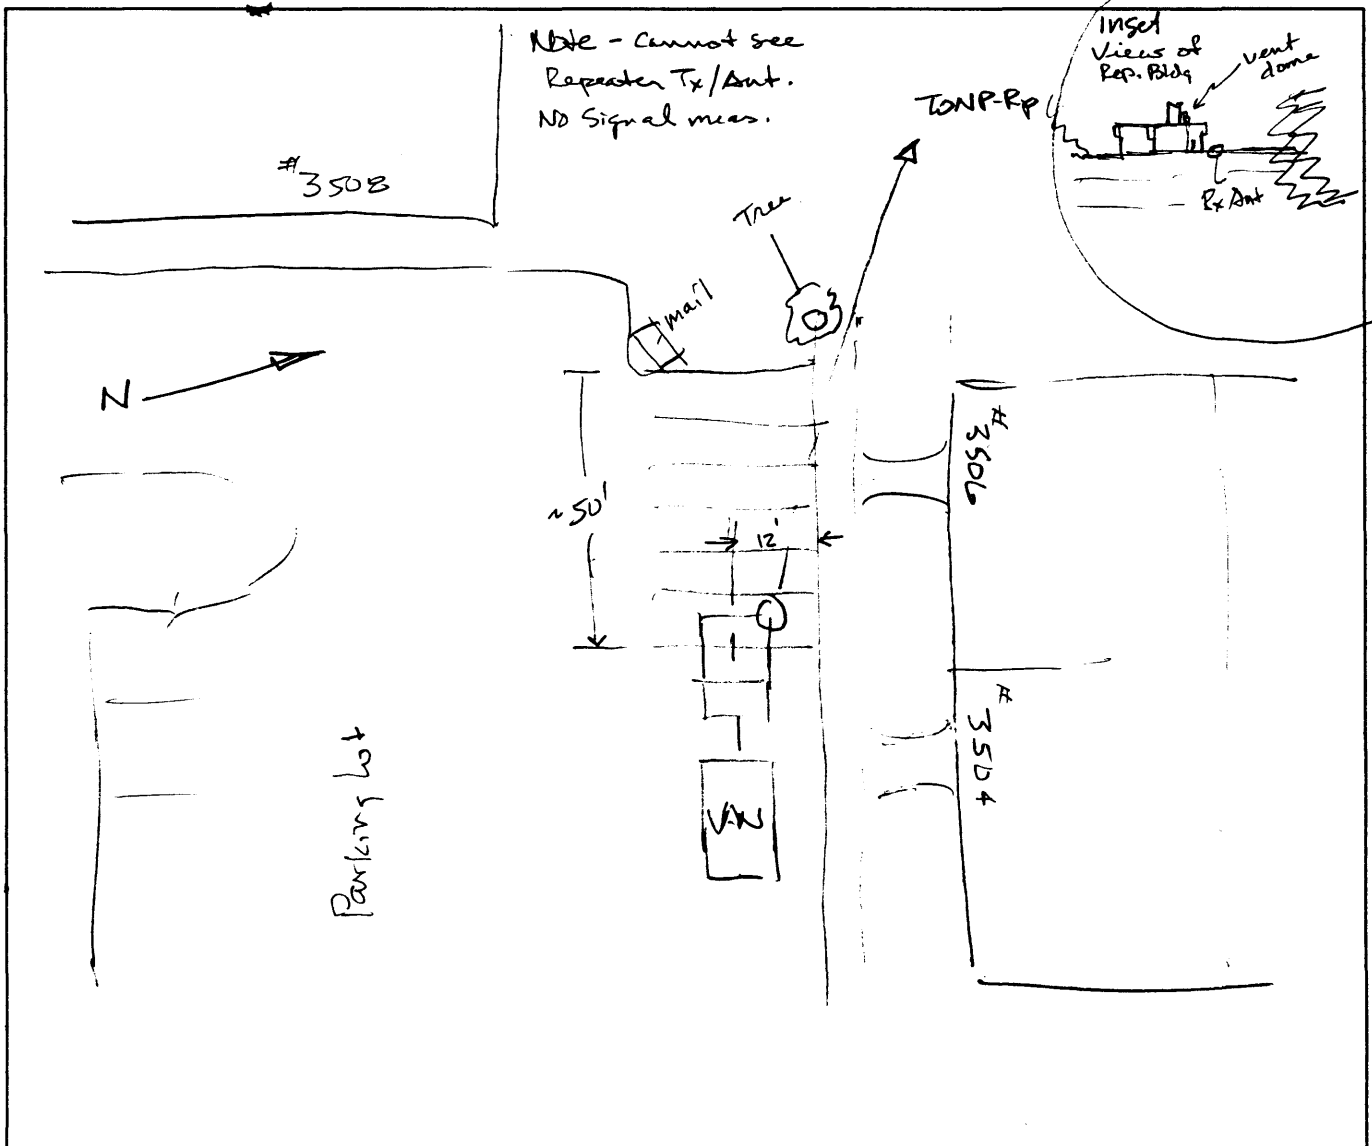 Note - Cannot see
Repeater Tx/Ant.
No Signal meas.
Inset
Views of
Rep. Bldg
vent
dome
Rx Ant
TONP-Rp
#3508
Tree
mail
N
~50'
12'
#3506
#3504
VAN
Parking Lot